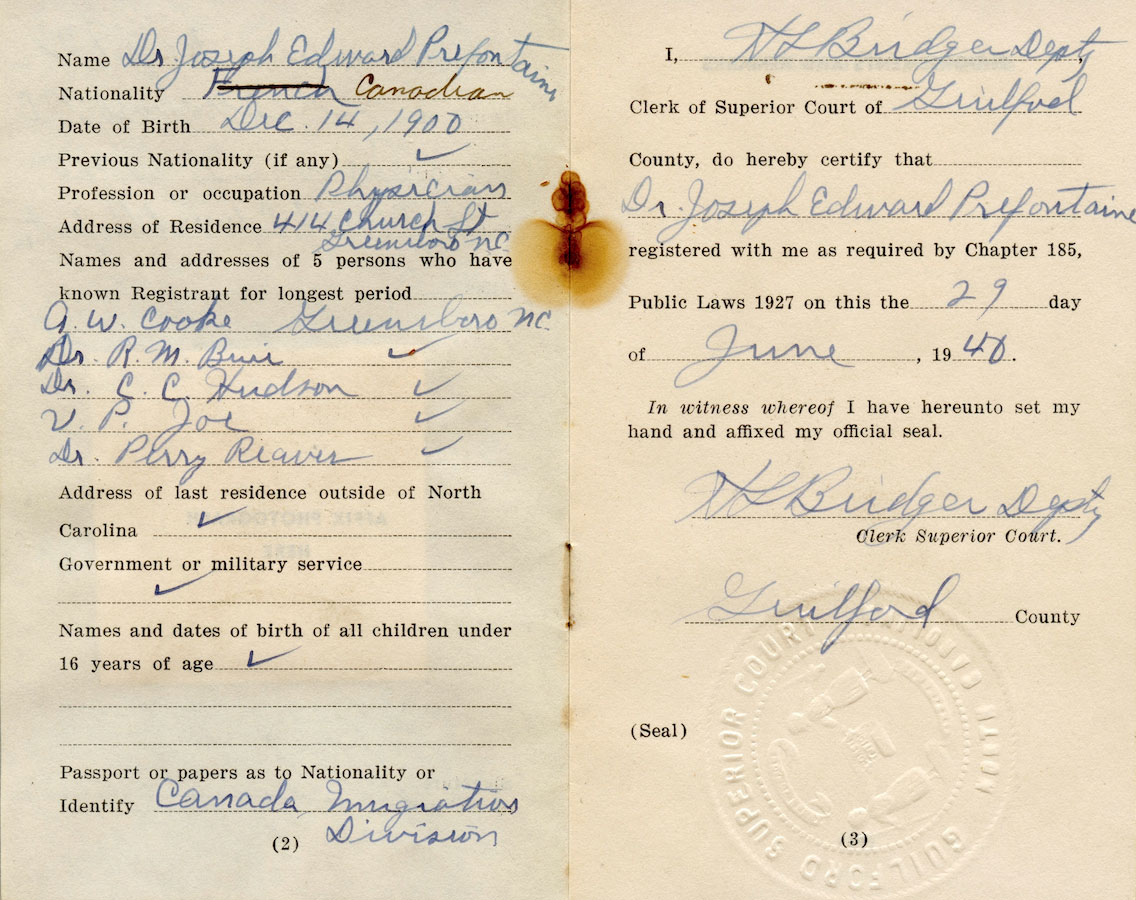 Name Dr Joseph Edward Prefontaine
Nationality French Canadian
Date of Birth Dec. 14, 1900
Previous Nationality (if any)
Profession or occupation Physician
Address of Residence 414 Church St
Greensboro NC
Names and addresses of 5 persons who have
known Registrant for longest period
A. W. Cooke Greensboro NC.
Dr. R. M. Buie
Dr. C. C. Hudson
V. P. Joe
Dr. Perry Reaves
Address of last residence outside of North
Carolina
Government or military service
Names and dates of birth of all children under
16 years of age
Passport or papers as to Nationality or
Identify Canada Imigration
Division
(2)
I, Bridger Depty,
Clerk of Superior Court of Guilford
County, do hereby certify that
Dr. Joseph Edward Prefontaine
registered with me as required by Chapter 185,
Public Laws 1927 on this the 29 day
of June, 1940.
In witness whereof I have hereunto set my
hand and affixed my official seal.
Bridger Depty
Clerk Superior Court.
Guilford County
(Seal)
GUILFORD SUPERIOR COURT NORTH CAROLINA
(3)